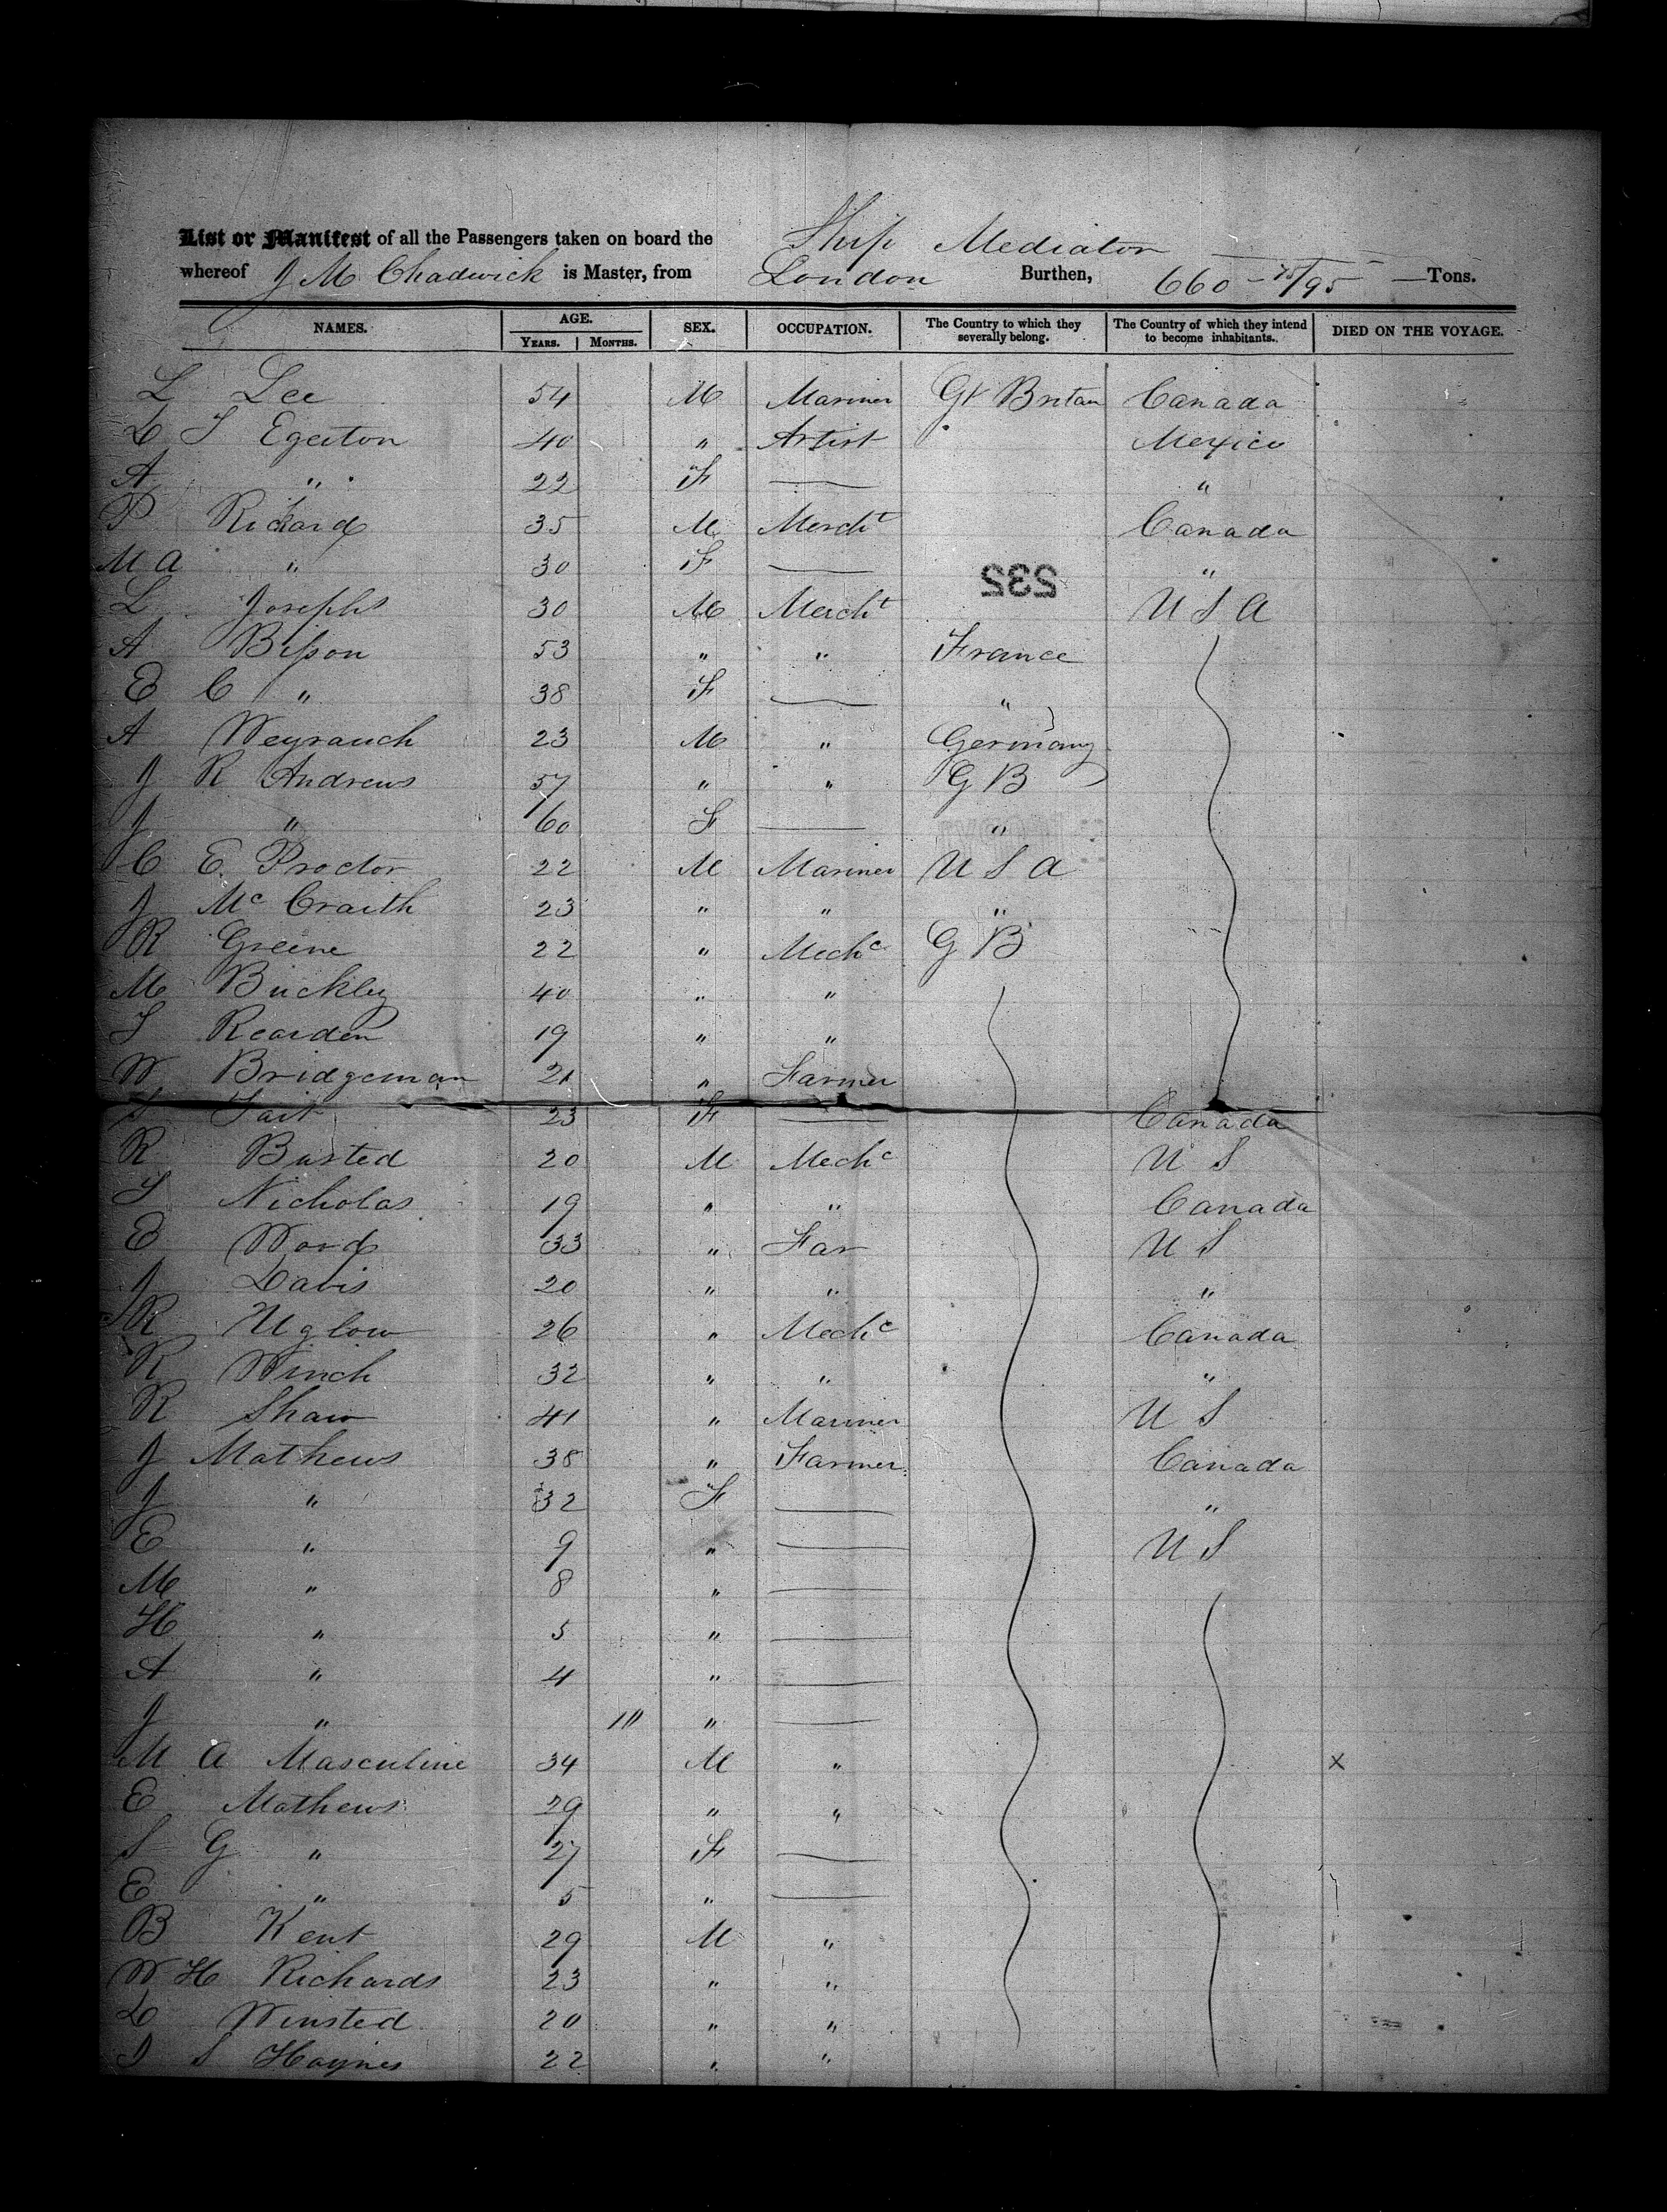 List or Manifest of all the Passengers taken on board the Ship Mediator
whereof J M Chadwick is Master, from London Burthen, 660 - 75/95 Tons.
NAMES. AGE. SEX. OCCUPATION. The Country to which they severally belong. The Country of which they intend to become inhabitants. DIED ON THE VOYAGE.
YEARS. MONTHS.
L Lee 54 M Mariner Gt Britan Canada
D T Egerton 40 " Artist Mexico
A " 22 F — "
P Richard 35 M Mercht Canada
M A " 30 F — "
2532
L Josephs 30 M Mercht U S A
A Bisson 53 " " France
E C " 38 F — "
A Weyrauch 23 M " Germany
J R Andrews 57 " " G B
J " 60 F — "
C E Proctor 22 M Mariner U S A
J Mc Craith 23 " " "
R Greene 22 " Mechc G B
M Buckley 40 " "
T Rearden 19 " "
W Bridgeman 21 " Farmer
S Tait 23 F — Canada
R Busted 20 M Mechc U S
T Nicholas 19 " " Canada
E Ward 33 " Far U S
J Davis 20 " " "
R Uglow 26 " Mechc Canada
R Winch 32 " " "
R Shaw 41 " Mariner U S
J Mathews 38 " Farmer Canada
J " 32 F — "
E " 9 " — U S
M " 8 " —
H " 5 " —
A " 4 " —
J " 10 " —
M A Masculine 34 M " x
E Mathews 29 " "
S G " 27 F —
E " 5 " —
B Kent 29 M "
W H Richards 23 " "
D Winsted 20 " "
J S Haynes 22 " "